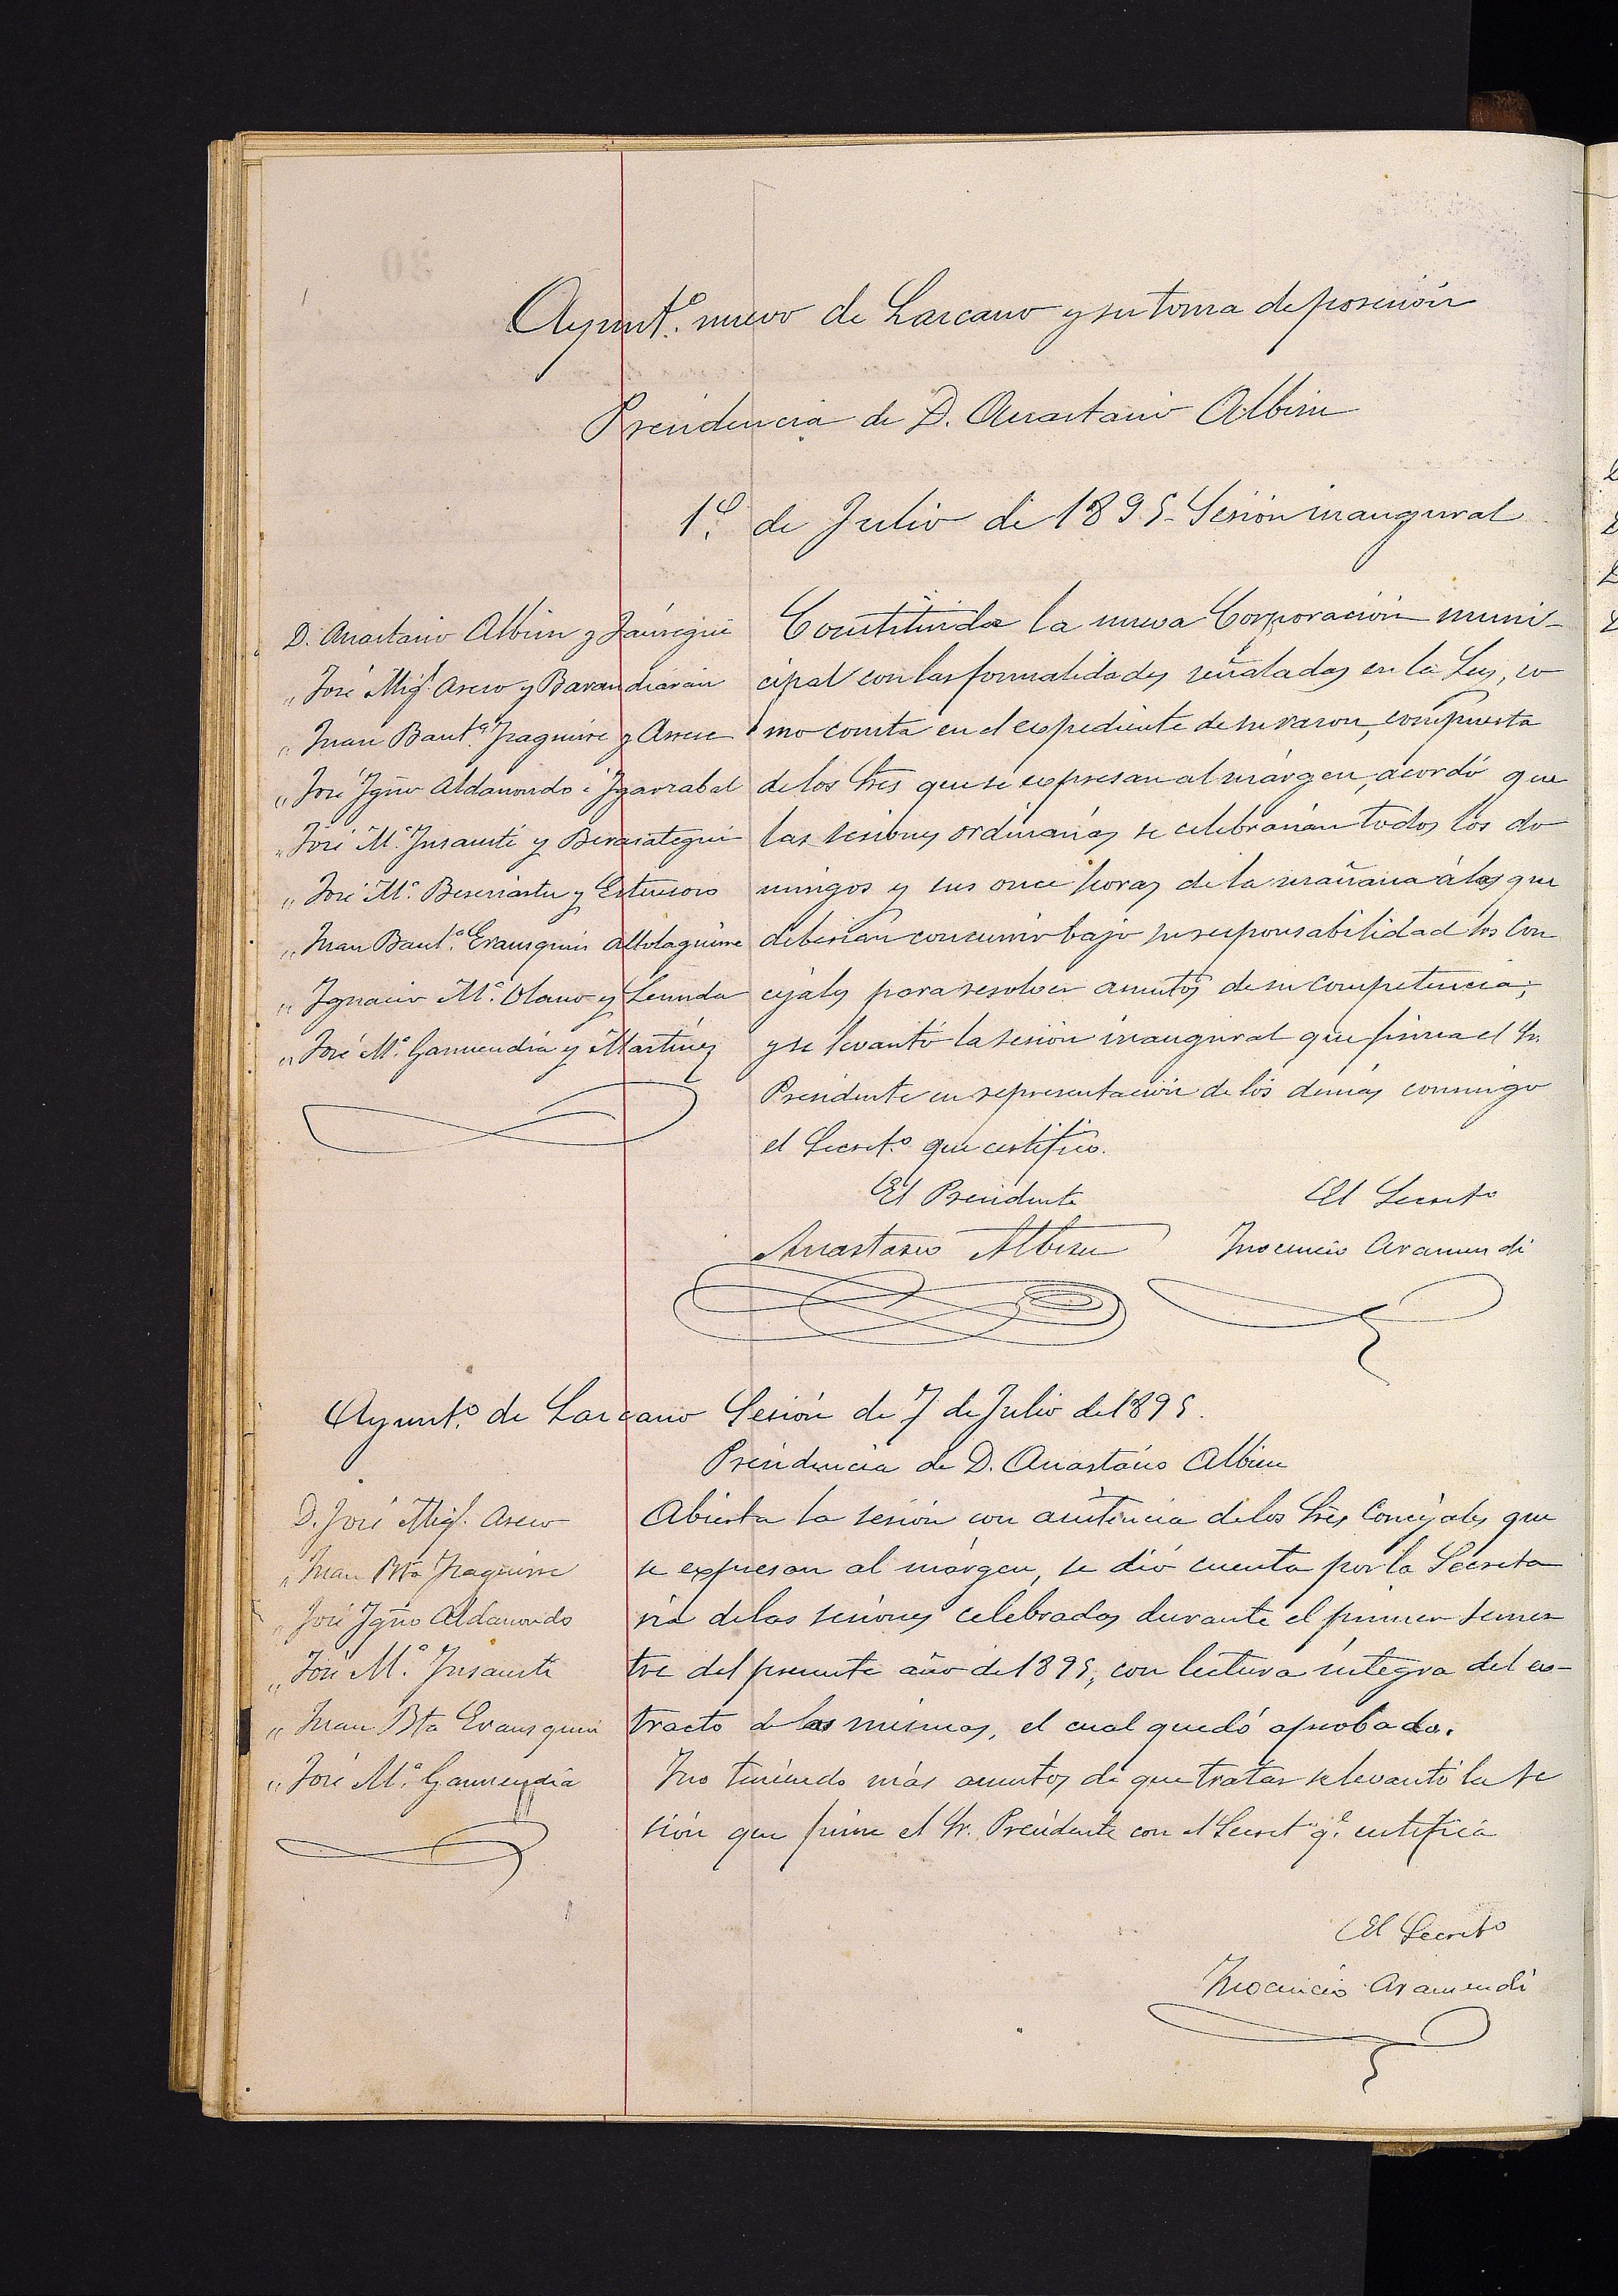 Ayunt.º nuevo de Lazcano y su toma de posesión
Presidencia de D. Anastasio Albisu
1.º de Julio de 1895- Sesión inaugural
D. Anastasio Albisu y Jáuregui
„ José Mig.l Aseso y Barandiarán
„ Juan Baut.ª Iraguirre y Arrese
„ José Ignº Aldanondo é Igarzabal
„ José M.ª Insausti y Berasategui
„ José M.ª Beseriartu y
„ Juan Baut.ª Erausquin Altolaguirre
„ Ignacio M.ª Olano y
„ José M.ª Garmendia y Martinez
Constituida la nueva Corporación muni-
cipal con las formalidades señaladas en la Ley, co
mo consta en el expediente de su razon, compuesta
de los Sres que se expresan al márgen, acordó que
las sesiones ordinarias se celebrarían todos los do
mingos y sus once horas de la mañana á las que
deberían concurrir bajo su responsabilidad los Con
cejales para resolver asuntos de su competencia;
y se levantó la sesión inaugural que firma el Sr.
Presidente en representación de los demás conmigo
el Secret.º que certifico.
El Presidente
El Secretº
Anastasio Albisu
Inocencio Aramendi
Ayunt.º de Lazcano Sesión de 7 de Julio de 1895.
Presidencia de D. Anastásio Albisu
D. José Mig.l Aseso
„ Juan Bta Iraguirre
„ José Ignº Aldanondo
„ José M.ª Insausti
„ Juan Bta Erausquin
„ José M.ª Garmendia
Abierta la sesión con asistencia de los Sres Concejales que
se expresan al márgen, se dió cuenta por la Secreta
ria de las sesiones celebradas durante el primer semes
tre del presente año de 1895, con lectura íntegra del es-
tracto de las mismas, el cual quedó aprobado.
Y no teniendo más asuntos de que tratar se levantó la se
sión que firma el Sr. Presidente con el Secretº q.e certifica
El Secretº
Inocencio Aramendi